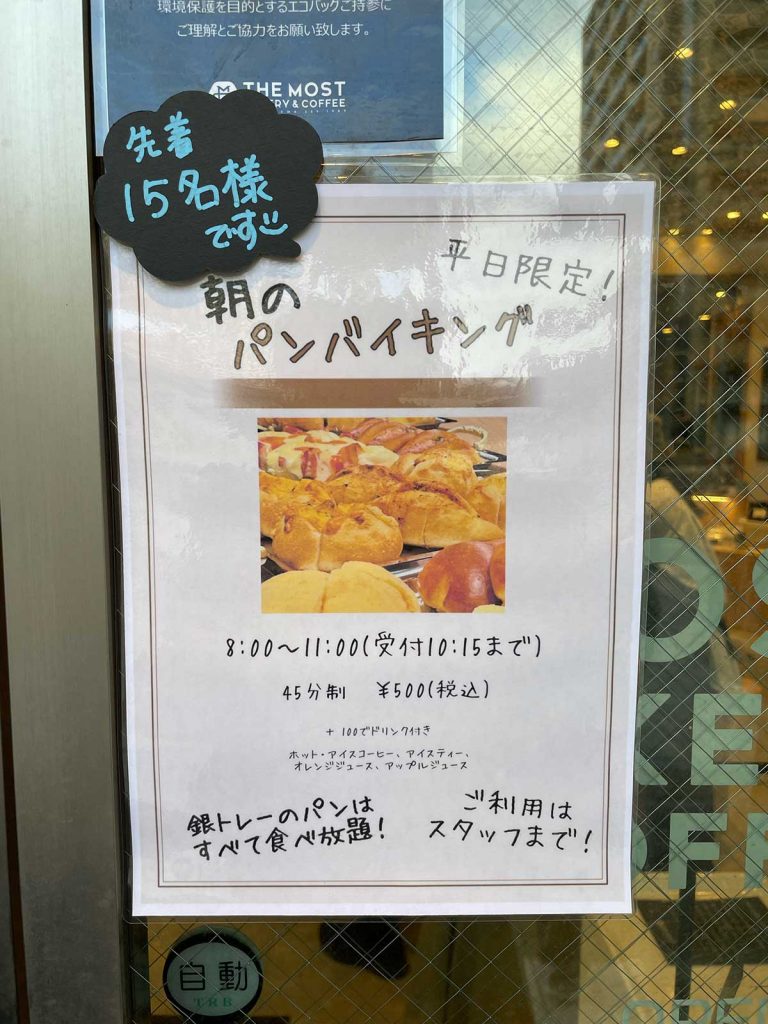 環境保護を目的とするエコバックご持参に
ご理解とご協力をお願い致します。
THE MOST
RY & COFFEE
先着
15名様
です
平日限定!
朝の
パンバイキング
8:00～11:00(受付10:15まで)
45分制 ¥500(税込)
+100でドリンク付き
ホット・アイスコーヒー、アイスティー、
オレンジジュース、アップルジュース
銀トレーのパンは
すべて食べ放題!
ご利用は
スタッフまで!
OS
KE
OFF
自動
TRB
OPEN